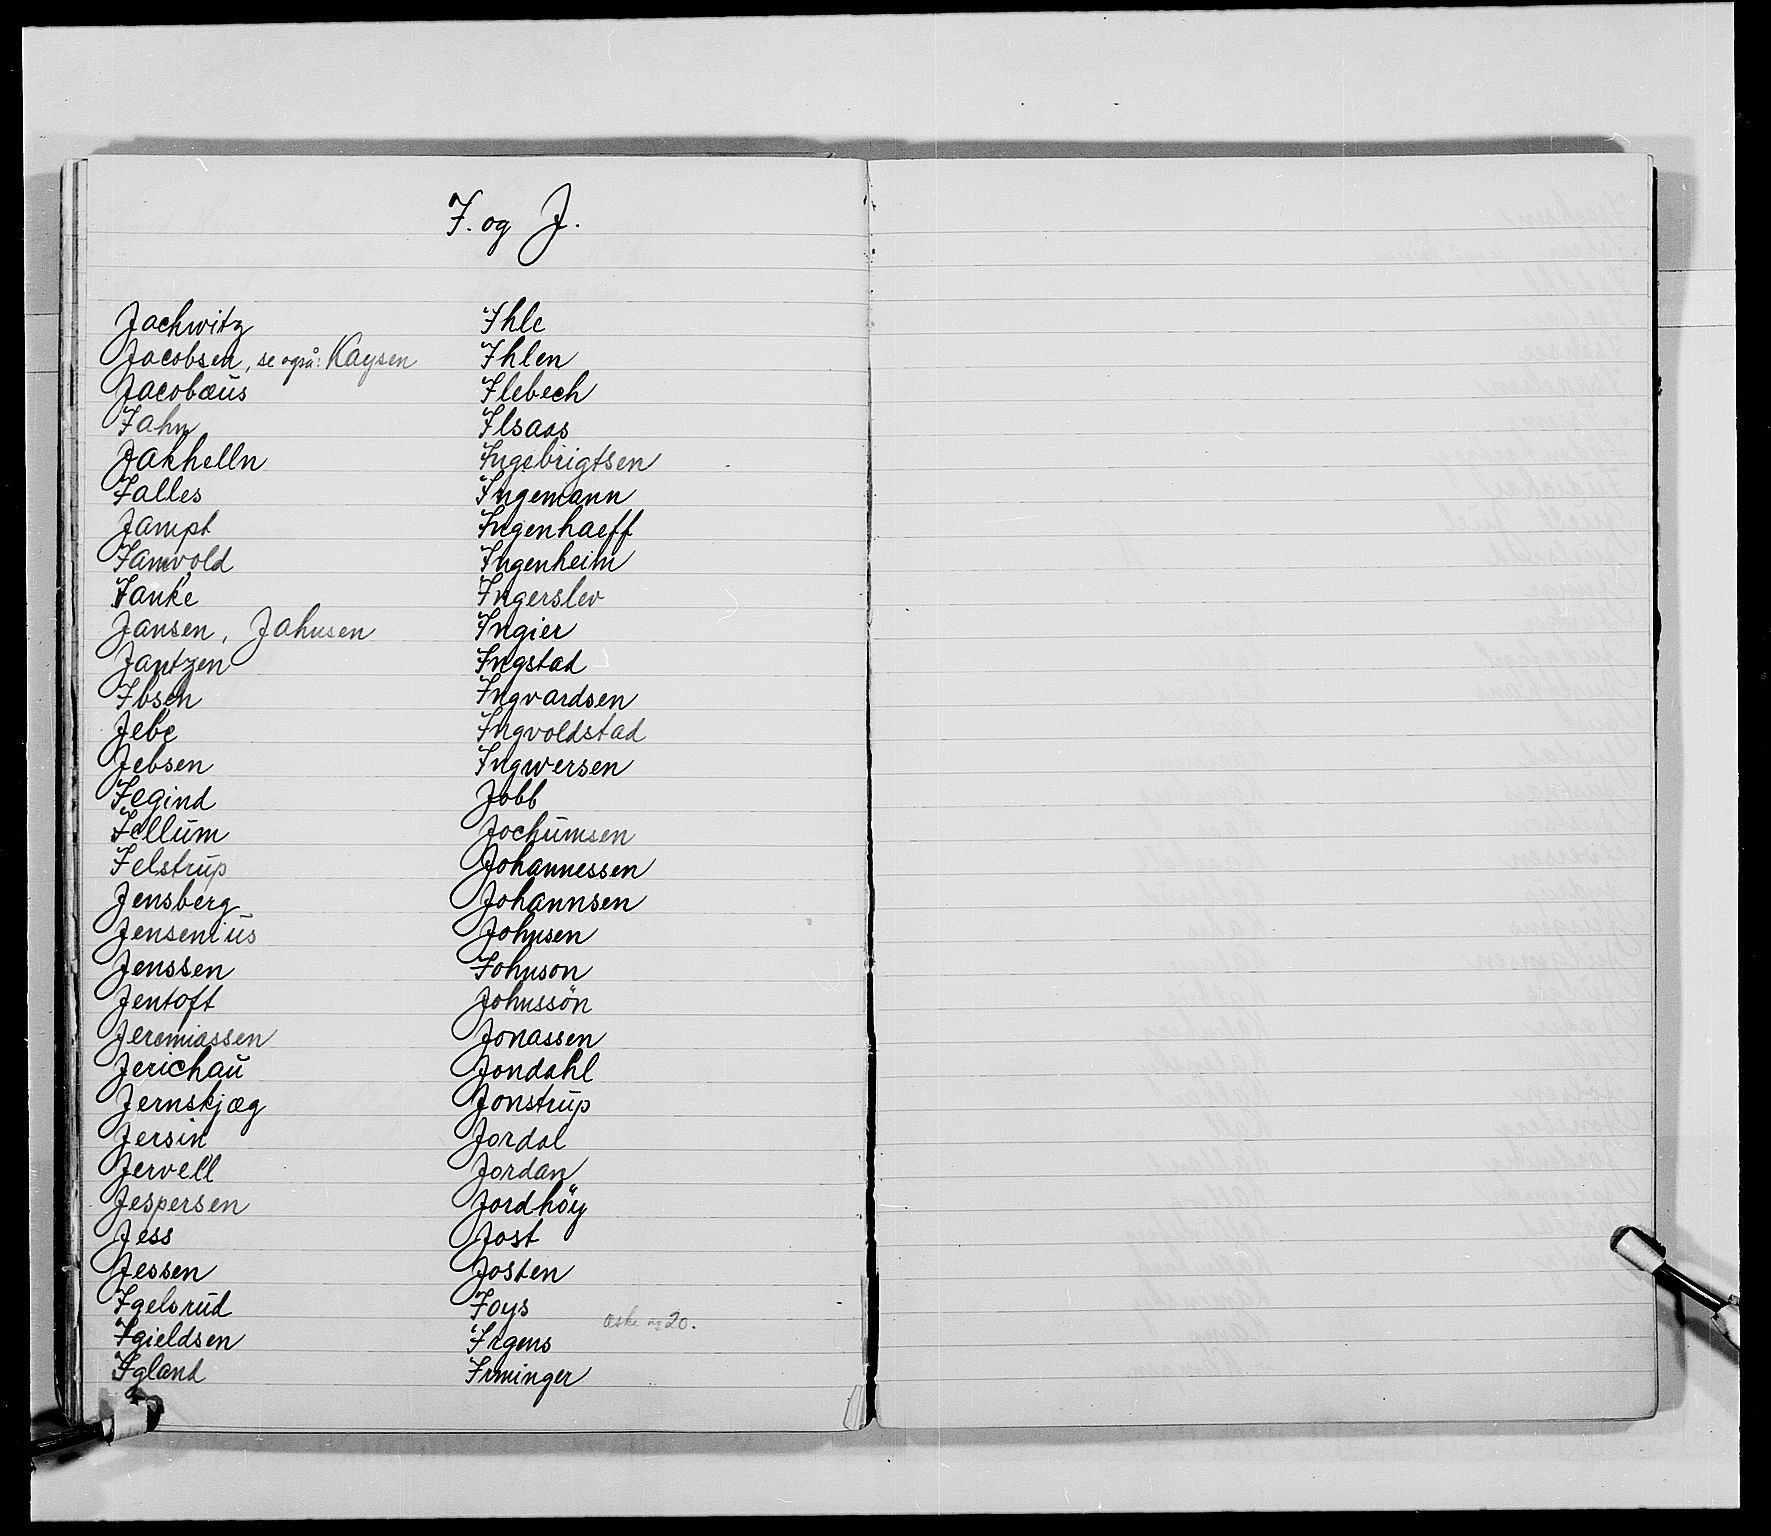 I. og J.
Jachwitz
Jacobsen, se også: Kaysen
Jacobæus
Jahn
Jakhelln
Jalles
Jampt
Jamvold
Janke
Jansen, Jahnsen
Jantzen
Ibsen
Jebe
Jebsen
Jegind
Jellum
Jelstrup
Jensberg
Jensenius
Jenssen
Jentoft
Jeremiassen
Jerichau
Jernskjæg
Jersin
Jervell
Jespersen
Jess
Jessen
Igelsrud
Igieldsen
Igland
Ihle
Ihlen
Ilebech
Ilsaas
Ingebrigtsen
Ingemann
Ingenhaeff
Ingenheim
Ingerslev
Ingier
Ingstad
Ingvardsen
Ingvoldstad
Ingwersen
Jobb
Jochumsen
Johannessen
Johannsen
Johnsen
Johnson
Johnssön
Jonassen
Jondahl
Jonstrup
Jordal
Jordan
Jordhöy
Jost
Josten
Joys
aske no 20.
Irgens
Irminger